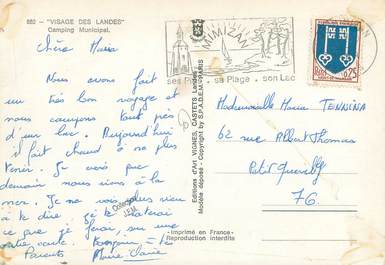 882 - "VISAGE DES LANDES"
Camping Municipal.
Chère Maria
Nous avons fait
un très bon voyage et
nous campons tout près
d'un lac. Aujourd'hui
il fait chaud à ne plus
tenir. Je crois que
demain nous irons à la
mer. Je ne vois plus rien
à te dire, je te
ce que je ferai, sur une
autre carte. Bonjour à tes
Parents
Marie
MIMIZAN
ses Pins. sa Plage. son Lac
REPUBLIQUE FRANÇAISE
0,25
POSTES
Mademoiselle Maria
62 rue Albert Thomas
Petit Quevilly
76.
Editions d'Art VIGNES, CASTETS Landes
Modèle déposé - Copyright by S.P.A.D.E.M. PARIS
-Imprimé en France-
Reproduction interdite